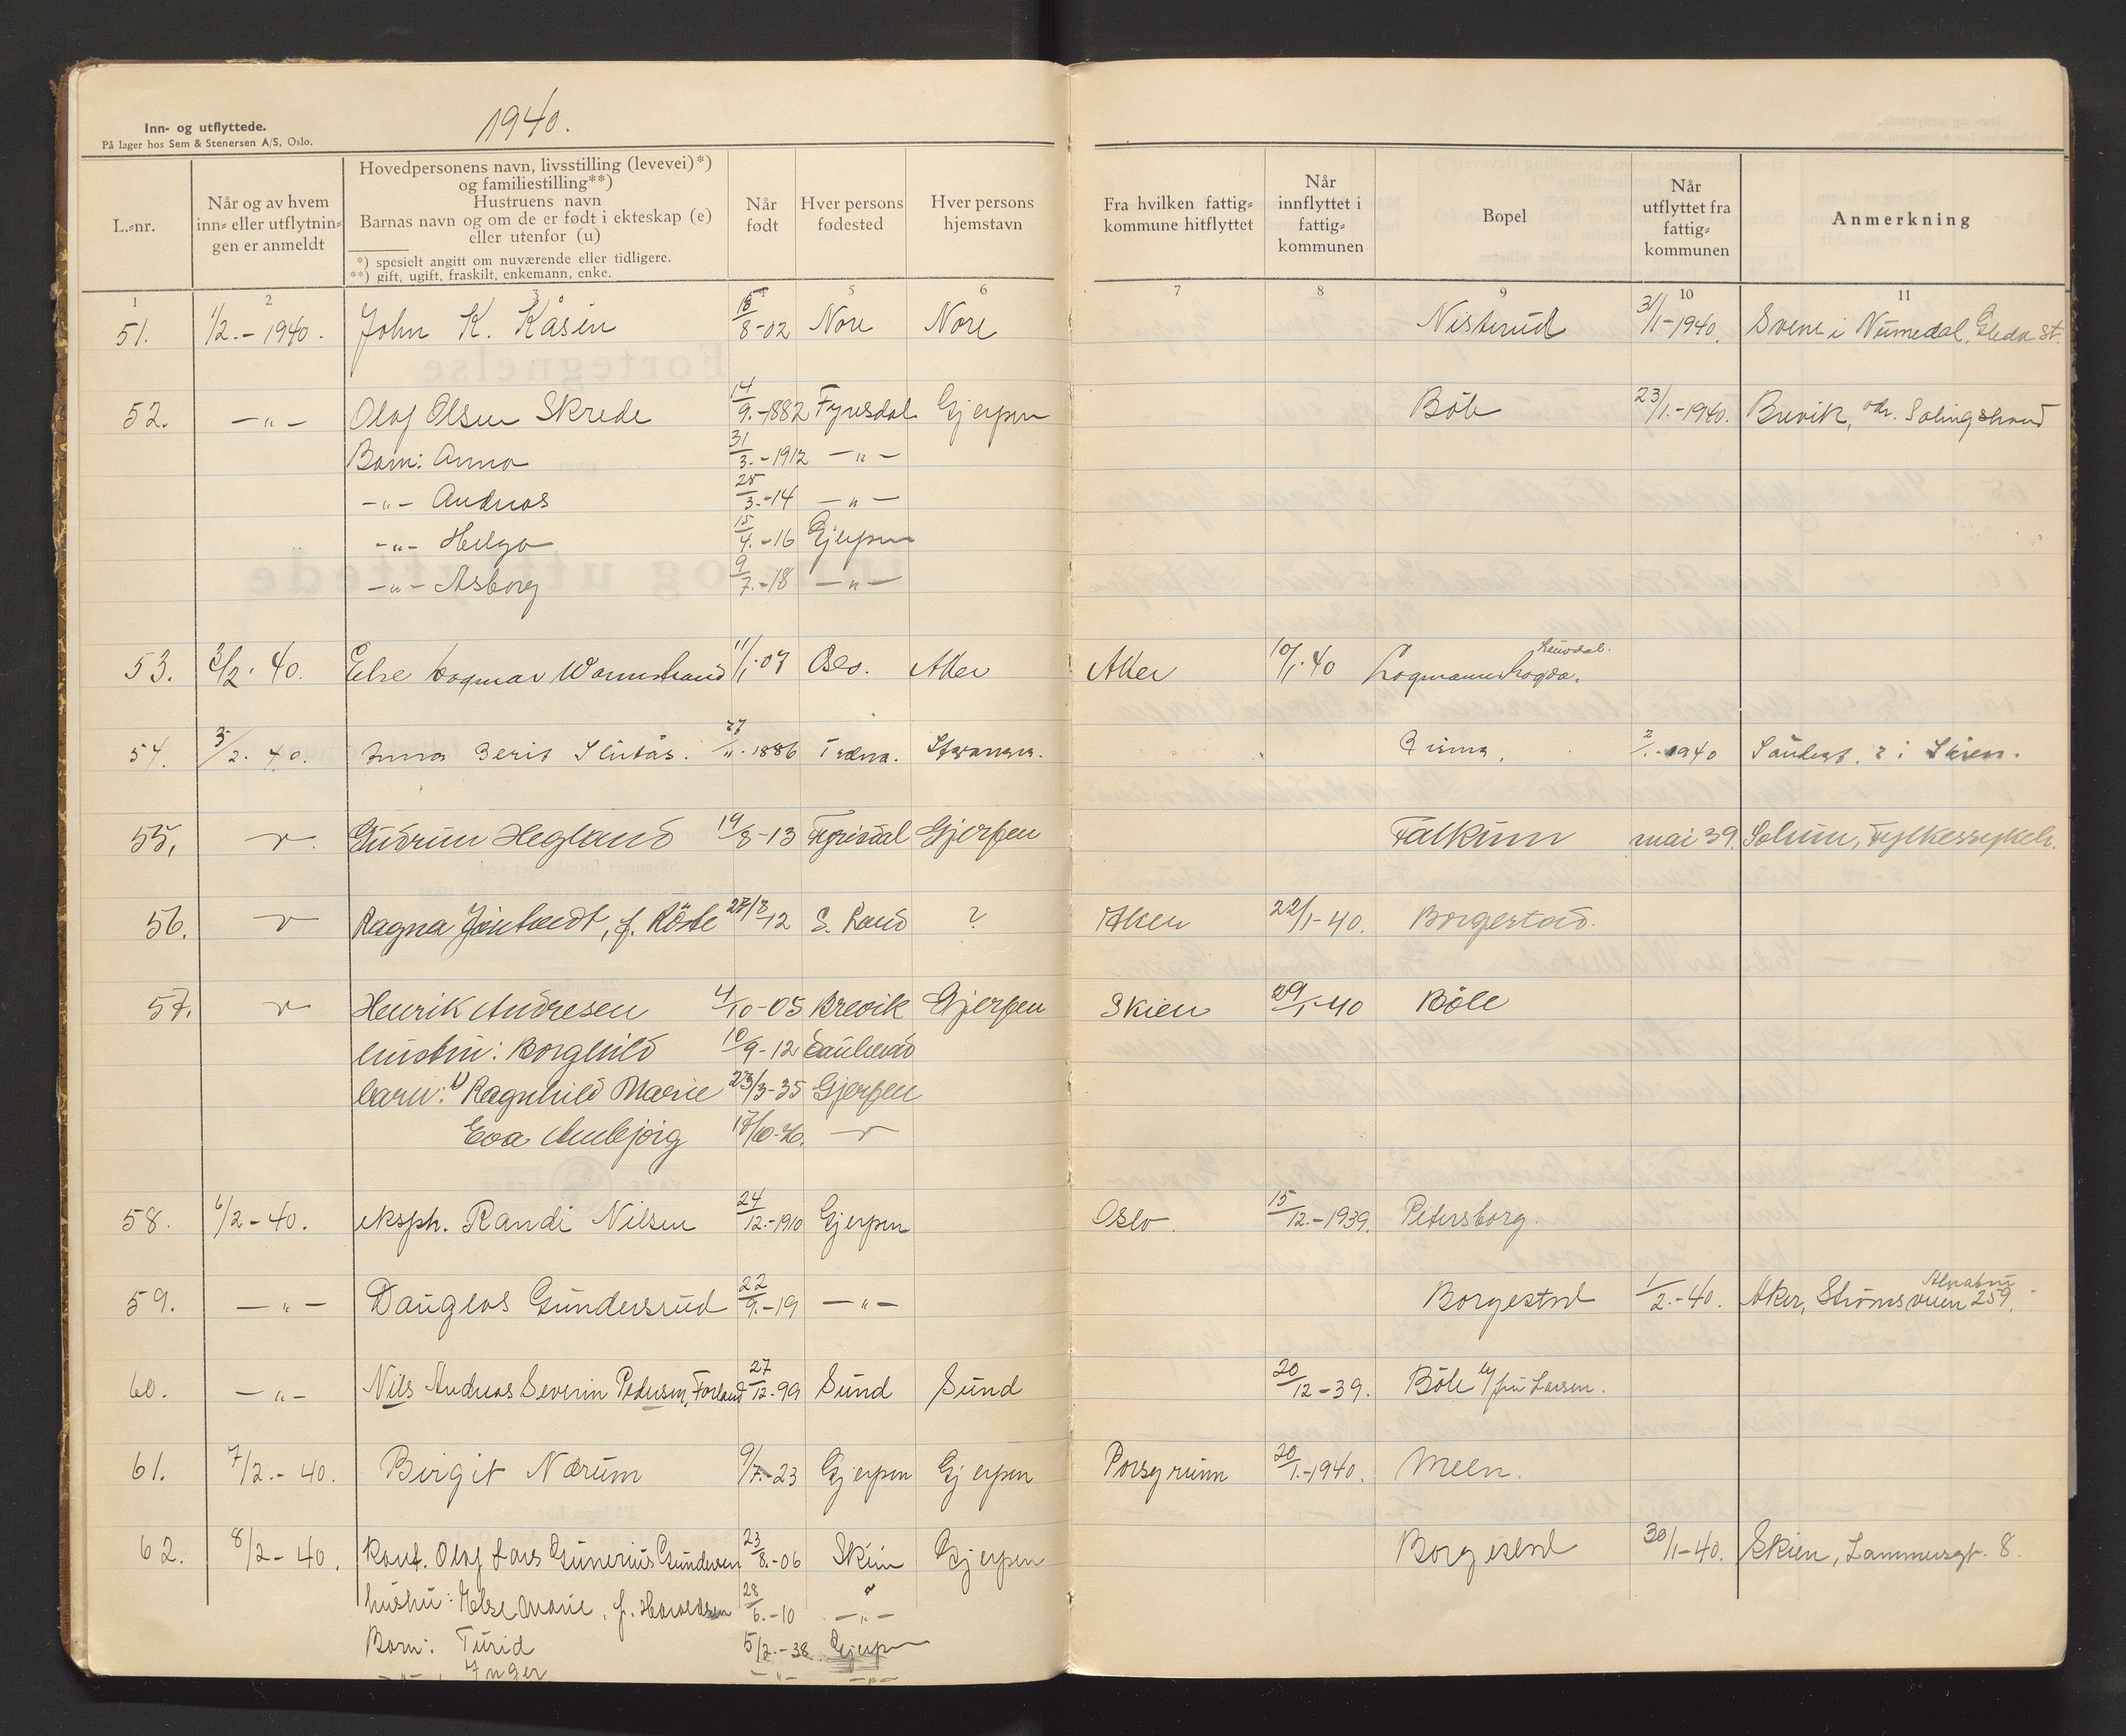 1940.
Inn- og utflyttede.
På lager hos Sem & Stenersen A/S, Oslo.
L.-nr.
Når og av hvem
inn- eller utflytnin-
gen er anmeldt
Hovedpersonens navn, livsstilling (levevei)*)
og familiestilling**)
Hustruens navn
Barnas navn og om de er født i ekteskap (e)
eller utenfor (u)
*) spesielt angitt om nuværende eller tidligere.
**) gift, ugift, fraskilt, enkemann, enke.
Når
født
Hver persons
fødested
Hver persons
hjemstavn
Fra hvilken fattig-
kommune hitflyttet
Når
innflyttet i
fattig-
kommunen
Bopel
Når
utflyttet fra
fattig-
kommunen
Anmerkning
1 2 3 4 5 6 7 8 9 10 11
51. 1/2.-1940. John K. Kåsin 18/8-02 Nore Nore Nisterud 31/1-1940. Svene i Numedal, St.
52. -"- Olaf Olsen Skrede 14/9.-1882 Fyresdal Gjerpen Böle 23/1.-1940. Brevik,
Barn: Anna 31/3.-1912 -"-
-"- Andreas 25/3.-14 -"-
-"- Helga 15/4.-16 Gjerpen
-"- Asborg 9/7.-18 -"-
53. 3/2. 40. Else Dagmar 11/1-07 Oslo. Aker Aker 10/1-40
54. 5/2. 40. Anna Berit 27/11.1886 Stavanger. 2/1.-1940 2 i Skien.
55. Gudrun Hegland 19/8-13 Fyrisdal Gjerpen Falkum mai 39. Solum, Fylkessykeh.
56. Ragna f. 27/8-12 S. Land ? Aker 22/1-40. Borgestad.
57. Henrik Andresen 4/10-05 Brevik Gjerpen Skien 29/1-40 Böle
hustru: Borghild 10/9-12 Sauherad
barn: 1) Ragnhild Marie 23/3-35 Gjerpen
Eva Annbjørg 17/10-36.
58. 6/2-40. eksph. Randi Nilsen 24/12.-1910 Gjerpen Oslo. 15/12.-1939. Petersborg.
59. -"- Dauglas Gundersrud 22/9.-19 -"- Borgestad 1/2.-40. Aker, Strømsveien 259. Alnabru
60. -"- Nils Andreas Severin Pedersen, Forland 27/12.-99 Sund Sund 20/12-39. Böle h/ fru Larsen.
61. 7/2.-40. Birgit Nærum 9/7.-23 Gjerpen Gjerpen Porsgrunn 20/1.-1940. Meen.
62. 8/2-40. Kont. Olaf Lars Gunerius Gundersen 23/8.-06 Skien Gjerpen Borgestad 30/1-40. Skien, Lammersgt. 8.
hustru: Else Marie, f. Haraldsen 28/6.-10 -"-
Barn: Turid 5/2.-38 Gjerpen
-"- Inger -"- -"-